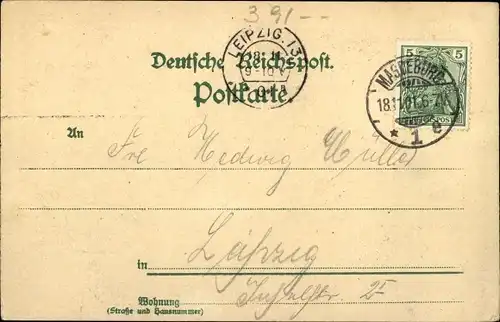 3 91--
LEIPZIG.13
18.11
9-10 V
01
Deutsche Reichspost.
Postkarte.
5 5
REICHSPOST
MAGDEBURG
18.11.01.6-7
* 1 e
An
Frl Hedwig Müller
in Leipzig
Wohnung
(Straße und Hausnummer)